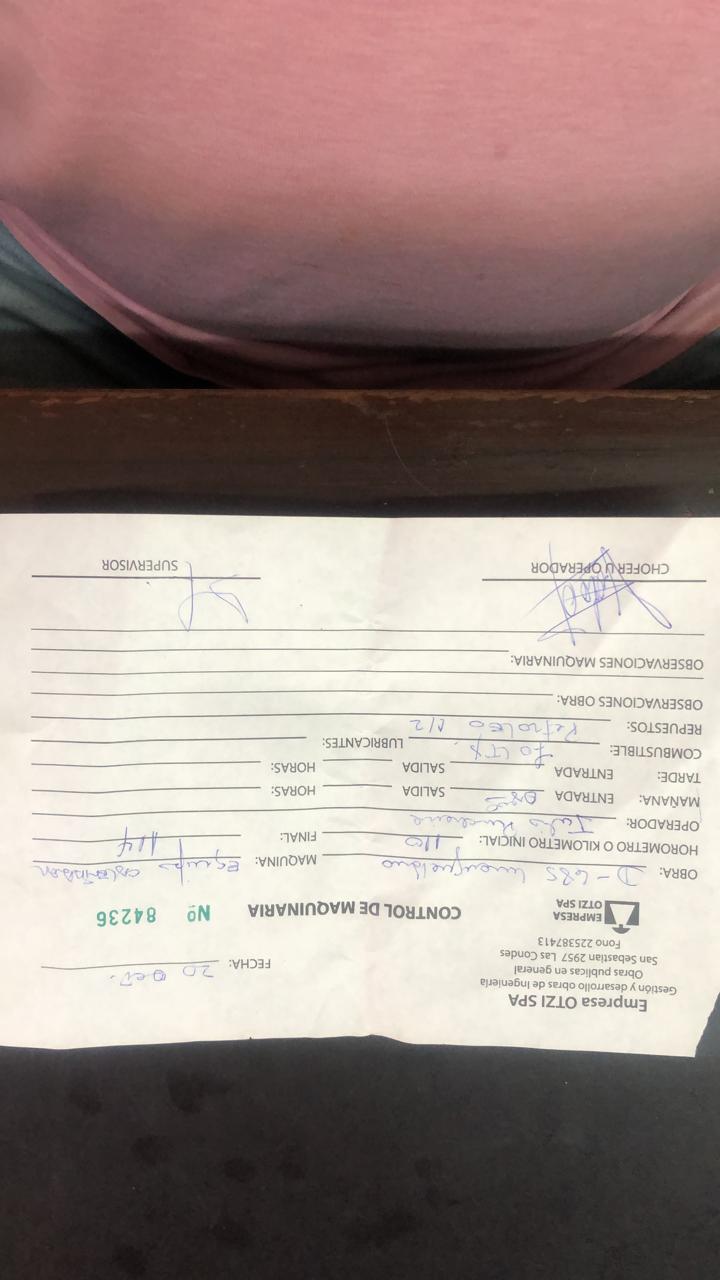 Empresa OTZI SPA
Gestión y desarrollo obras de Ingeniería
Obras publicas en general
San Sebastian 2957 Las Condes
Fono 225387413
FECHA: 20 Oct.
EMPRESA
OTZI SPA
CONTROL DE MAQUINARIA Nº 84236
OBRA: D-685 MAQUINA: Equipo
HOROMETRO O KILOMETRO INICIAL: 110 FINAL: 114
OPERADOR: Julio
MAÑANA: ENTRADA SALIDA HORAS:
TARDE: ENTRADA SALIDA HORAS:
COMBUSTIBLE: LUBRICANTES:
REPUESTOS: Petroleo 1/2
OBSERVACIONES OBRA:
OBSERVACIONES MAQUINARIA:
CHOFER U OPERADOR SUPERVISOR